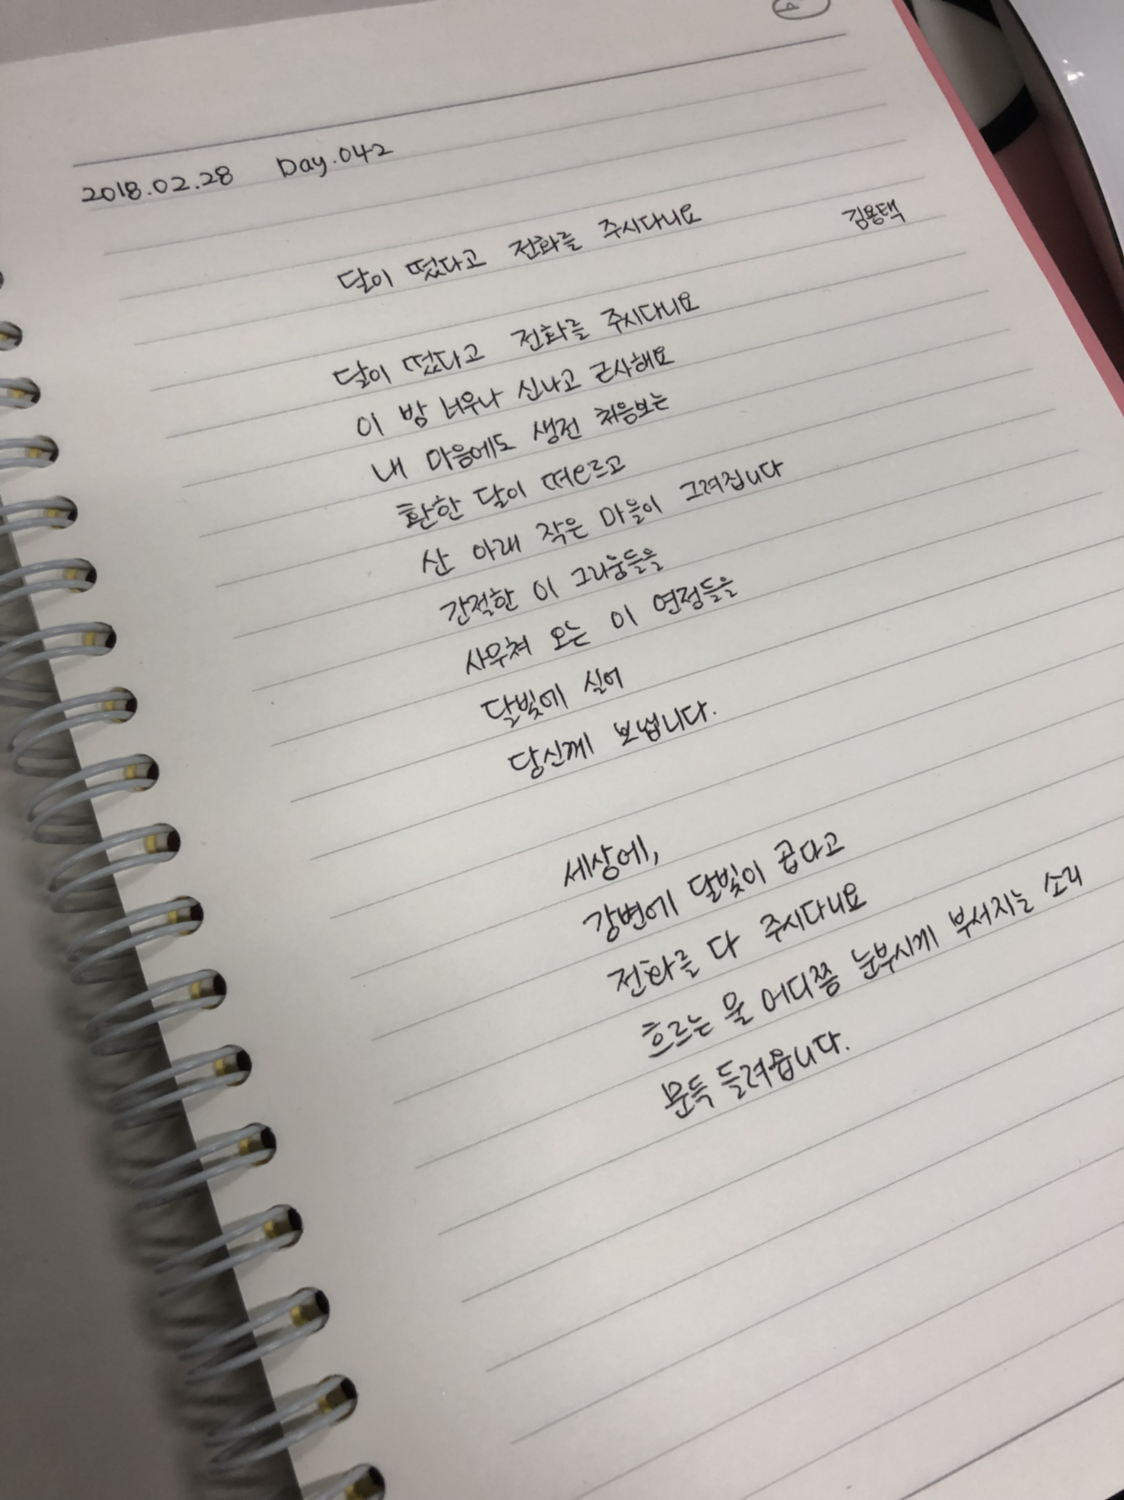 2018.02.28 Day.042
달이 떴다고 전화를 주시다니요
김용택
달이 떴다고 전화를 주시다니요
이 밤 너무나 신나고 근사해요
내 마음에도 생전 처음보는
환한 달이 떠오르고
산 아래 작은 마을이 그려집니다
간절한 이 그리움들을
사무쳐 오는 이 연정들을
달빛에 실어
당신께 보냅니다.
세상에,
강변에 달빛이 곱다고
전화를 다 주시다니요
흐르는 물 어디쯤 눈부시게 부서지는 소리
문득 들려옵니다.